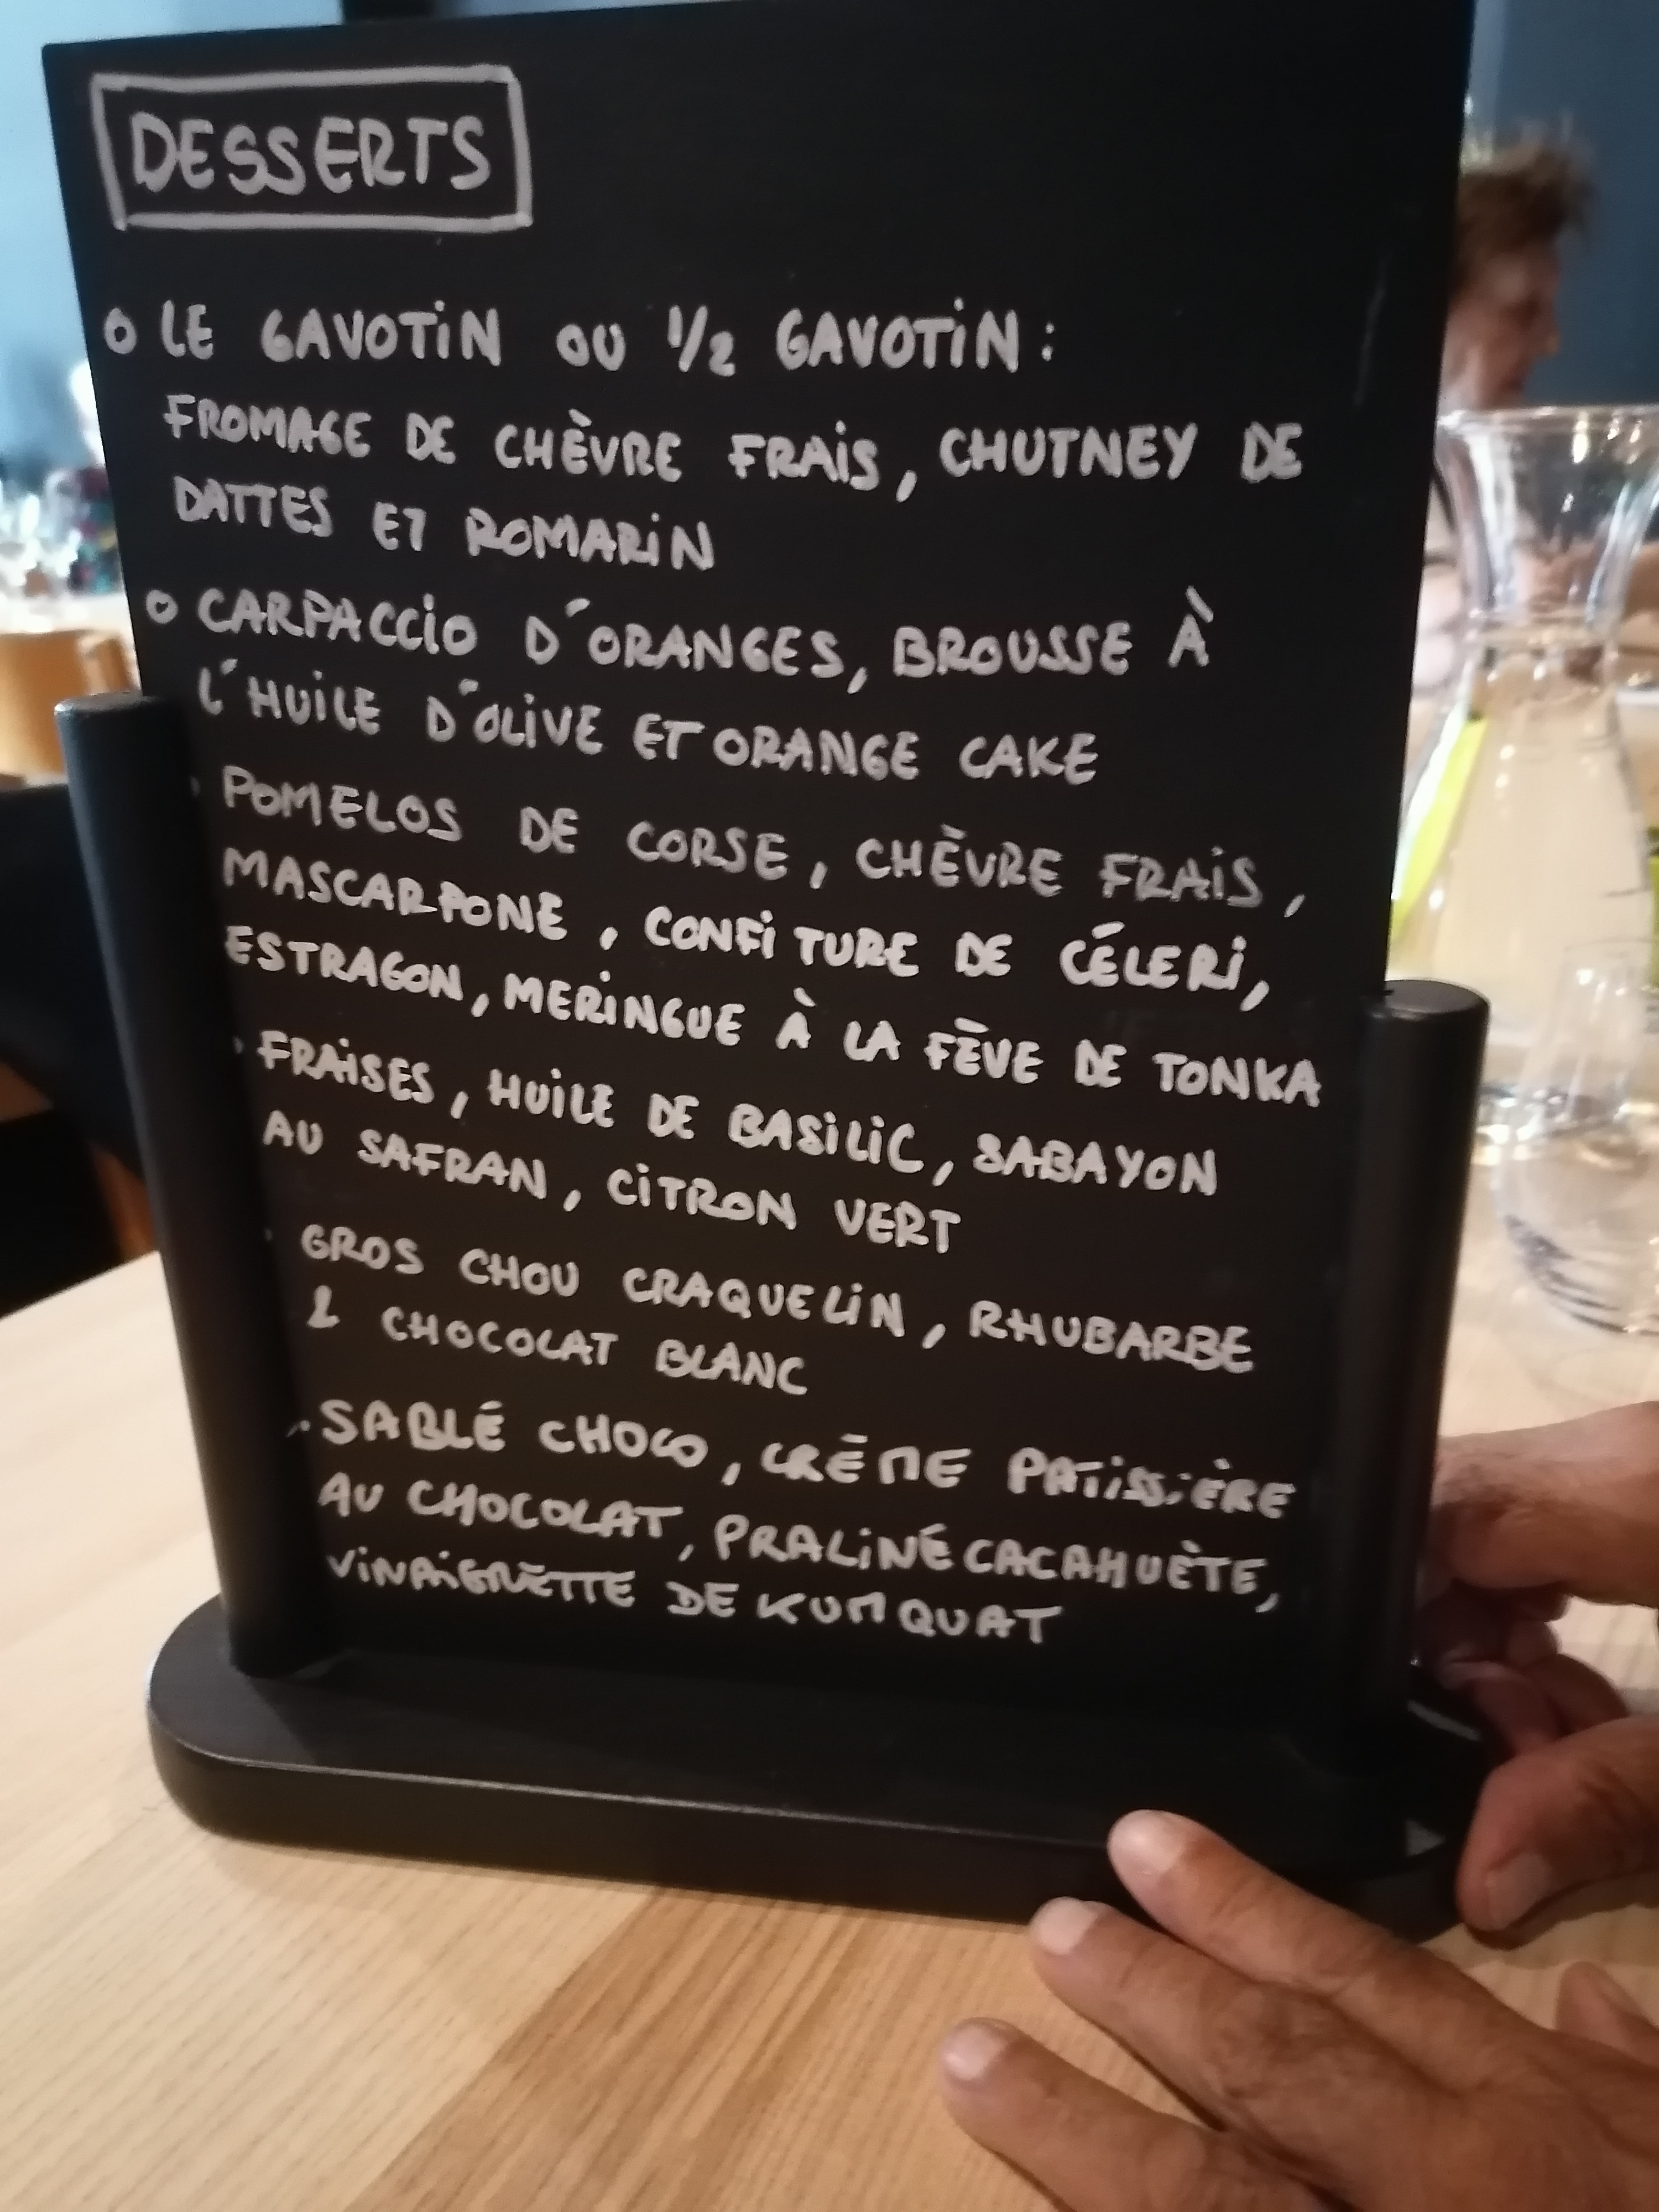 DESSERTS
o LE GAVOTiN OU 1/2 GAVOTiN :
FROMAGE DE CHÈVRE FRAiS, CHUTNEY DE
DATTES ET ROMARiN
o CARPACCiO D'ORANGES, BROUSSE À
L'HUiLE D'OLiVE ET ORANGE CAKE
POMELOS DE CORSE, CHÈVRE FRAiS,
MASCARPONE, CONFiTURE DE CÉLERi,
ESTRAGON, MERiNGUE À LA FÈVE DE TONKA
FRAiSES, HUiLE DE BASiLiC, SABAYON
AU SAFRAN, CiTRON VERT
GROS CHOU CRAQUELiN, RHUBARBE
& CHOCOLAT BLANC
SABLÉ CHOCO, CRÈME PATiSSiÈRE
AU CHOCOLAT, PRALiNÉ CACAHUÈTE,
ViNAiGRETTE DE KUMQUAT